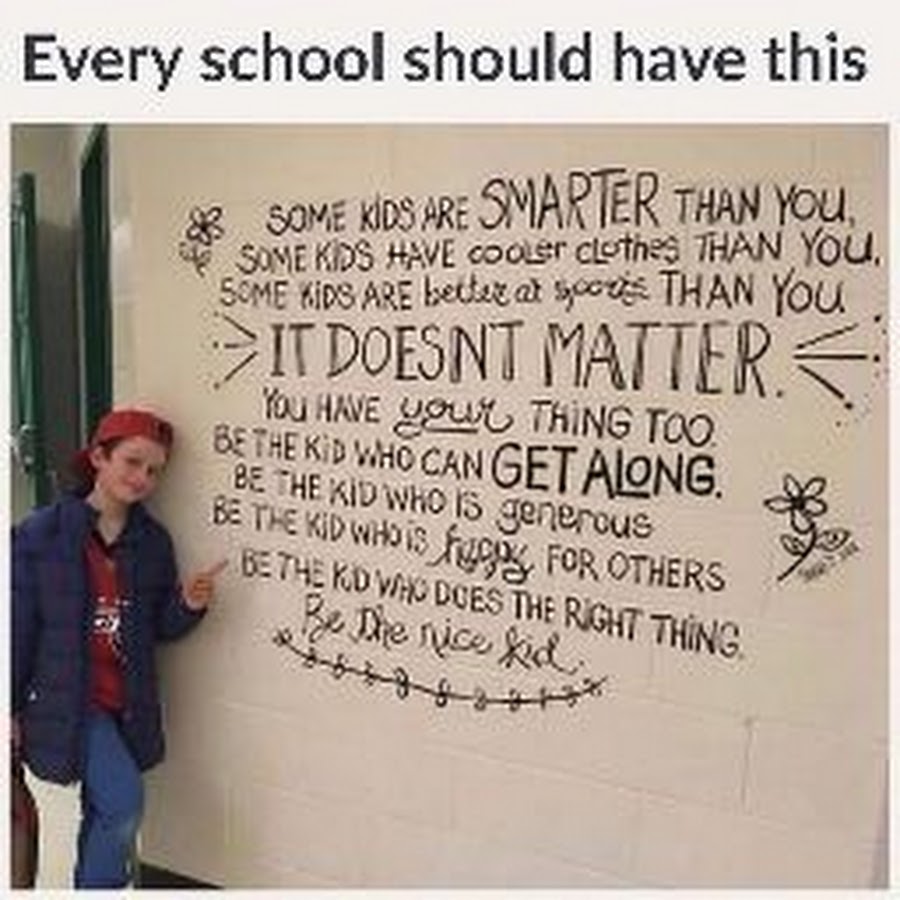 Every school should have this
SOME KIDS ARE SMARTER THAN YOU,
SOME KIDS HAVE cooler clothes THAN YOU,
SOME KIDS ARE better at sports THAN YOU.
IT DOESNT MATTER.
YOU HAVE your THING TOO.
BE THE KID WHO CAN GET ALONG.
BE THE KID WHO IS generous
BE THE KID WHO IS happy FOR OTHERS
BE THE KID WHO DOES THE RIGHT THING.
Be the nice kid.